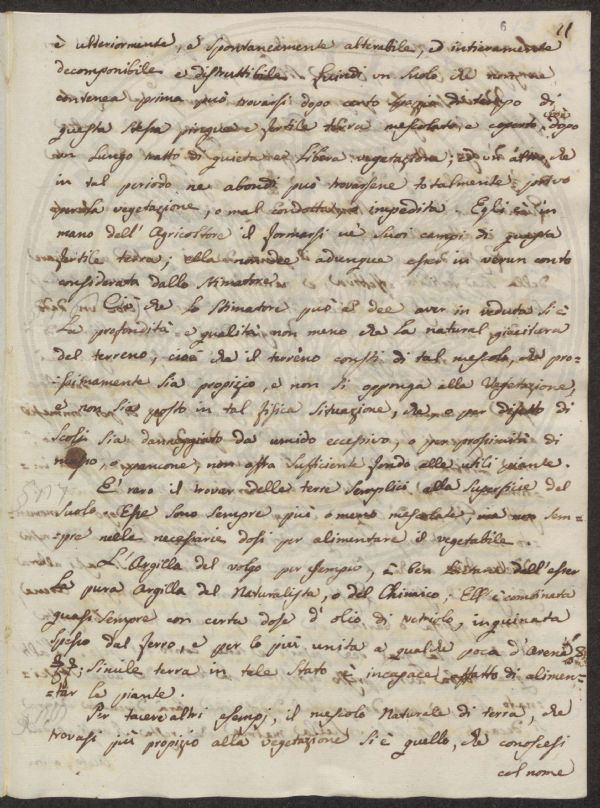 6 11
è ulteriormente, e spontaneamente alterabile, ed intieramente
decomponibile e distruttibile. Quindi un suolo che non ne
contenea prima può trovarsi dopo certo spazio di tempo di
questa stessa pingue e fertile terra mescolato, e coperto, dopo
un lungo tratto di quieta e libera vegetazione; ed un altro, che
in tal periodo ne abondi può trovarsene totalmente privo
vegetazione, o mal condotta, impedita. Egli è in
mano dell'Agricoltore il formarsi ne' suoi campi di questa
fertile terra; ella non dee adunque esser in verun conto
considerata dallo Stimatore.
Ciò che lo Stimatore può e dee aver in veduta si è
la profondità e qualità non meno che la natural giacitura
del terreno, cioè che il terreno consti di tal mescolo, che pro-
-ssimamente sia propizio, e non si opponga alla Vegetazione,
e non sia posto in tal fisica situazione, che, o per difetto di
scoli sia danneggiato da umido eccessivo, o per prossimità di
masso, o pancone, non offra sufficiente fondo alle utili piante.
È raro il trovar delle terre semplici alla superficie del
suolo. Esse sono sempre più o meno mescolate, ma non sem-
pre nelle necessarie dosi per alimentare il vegetabile.
L'Argilla del volgo per esempio, è ben lontana dall'esser
la pura Argilla del Naturalista, o del Chimico; Ell'è combinata
quasi sempre con certa dose d'olio di vetriolo, inquinata
spesso dal ferro, e per lo più unita a qualche poca d'Arena
; simile terra in tale stato è incapace affatto di alimen-
-tar le piante.
Per tacere altri esempj, il mescolo Naturale di terra, che
trovasi più propizio alla vegetazione si è quello, che conoscesi
col nome